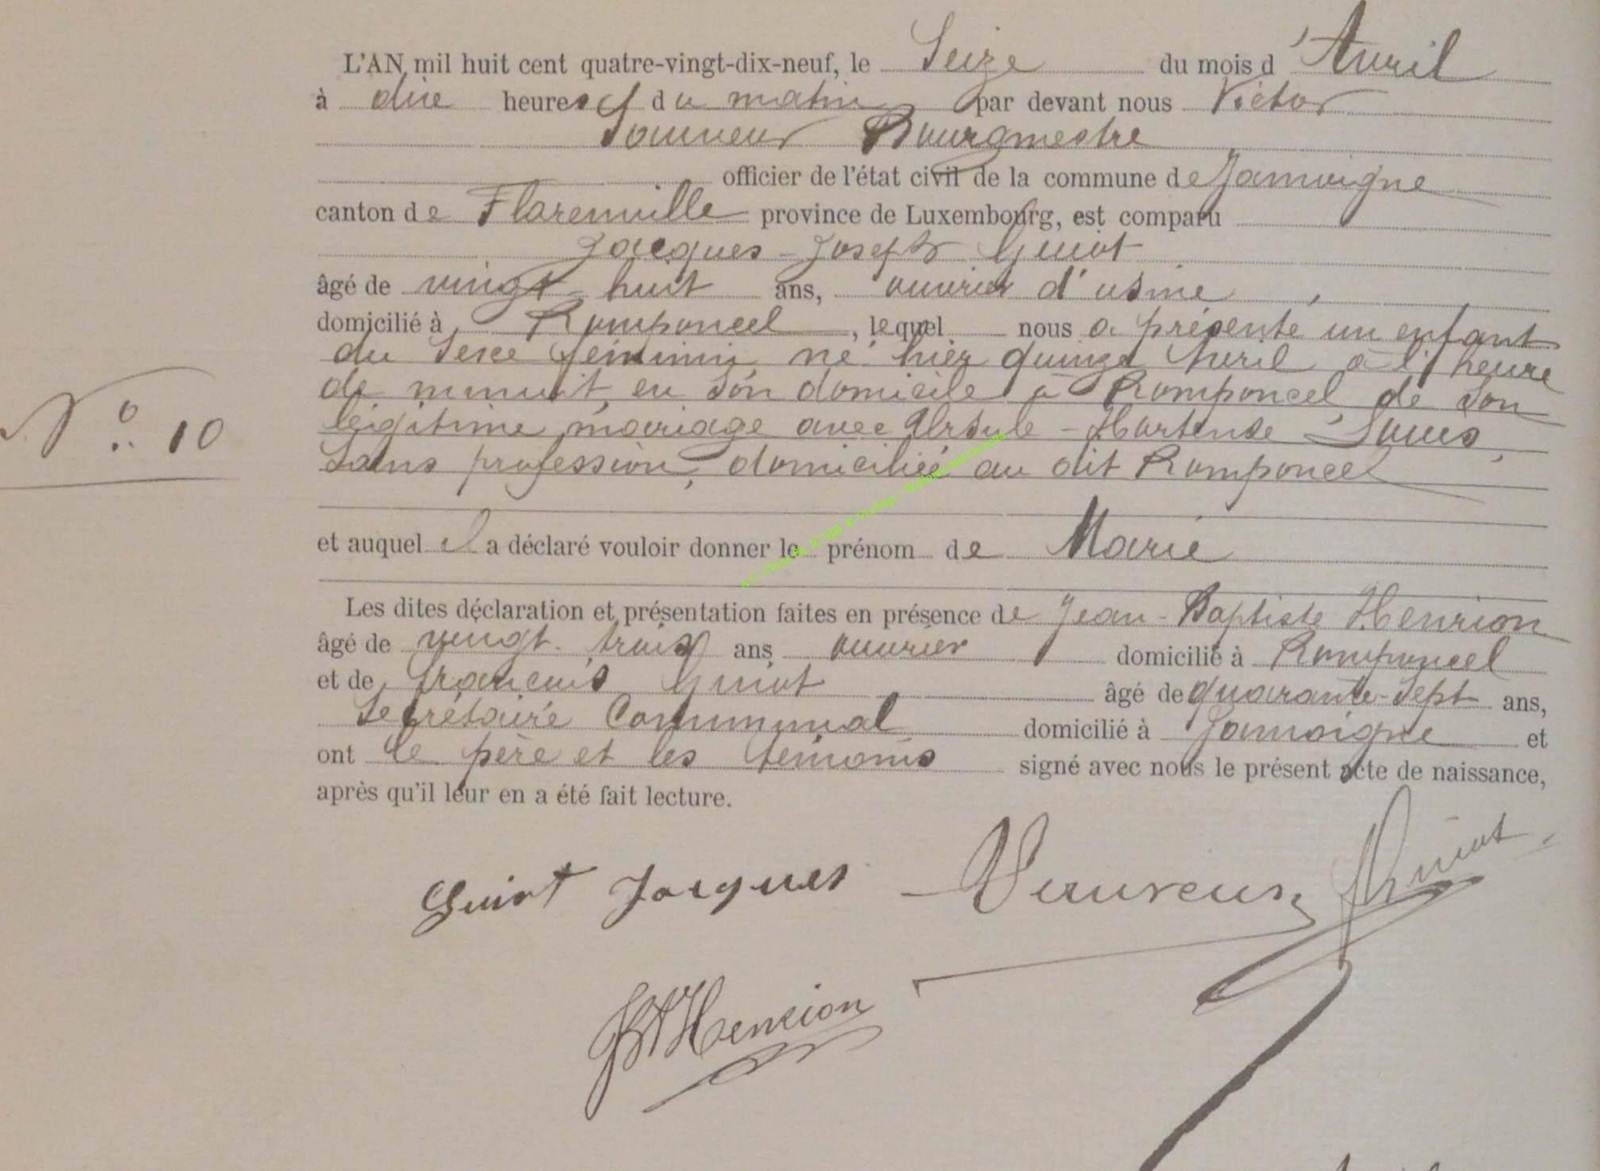 L'AN mil huit cent quatre-vingt-dix-neuf, le Seize du mois d'Avril
à dix heures du matin par devant nous Victor
Bourgmestre
officier de l'état civil de la commune de Jamoigne
canton de Florenville province de Luxembourg, est comparu
Jacques-Joseph Guiot
âgé de vingt-huit ans, ouvrier d'usine,
domicilié à Romponcel, lequel nous a présenté un enfant
du sexe féminin né hier quinze Avril à l'heure
de minuit en son domicile à Romponcel, de son
légitime mariage avec Ursule-Hortense
sans profession, domiciliée au dit Romponcel
N° 10
et auquel il a déclaré vouloir donner le prénom de Marie
Les dites déclaration et présentation faites en présence de Jean-Baptiste Henrion
âgé de vingt-trois ans ouvrier domicilié à Romponcel
et de François Guiot âgé de quarante-sept ans,
Secrétaire Communal domicilié à Jamoigne et
ont le père et les témoins signé avec nous le présent acte de naissance,
après qu'il leur en a été fait lecture.
Guiot Jacques
Guiot
JBtHenrion